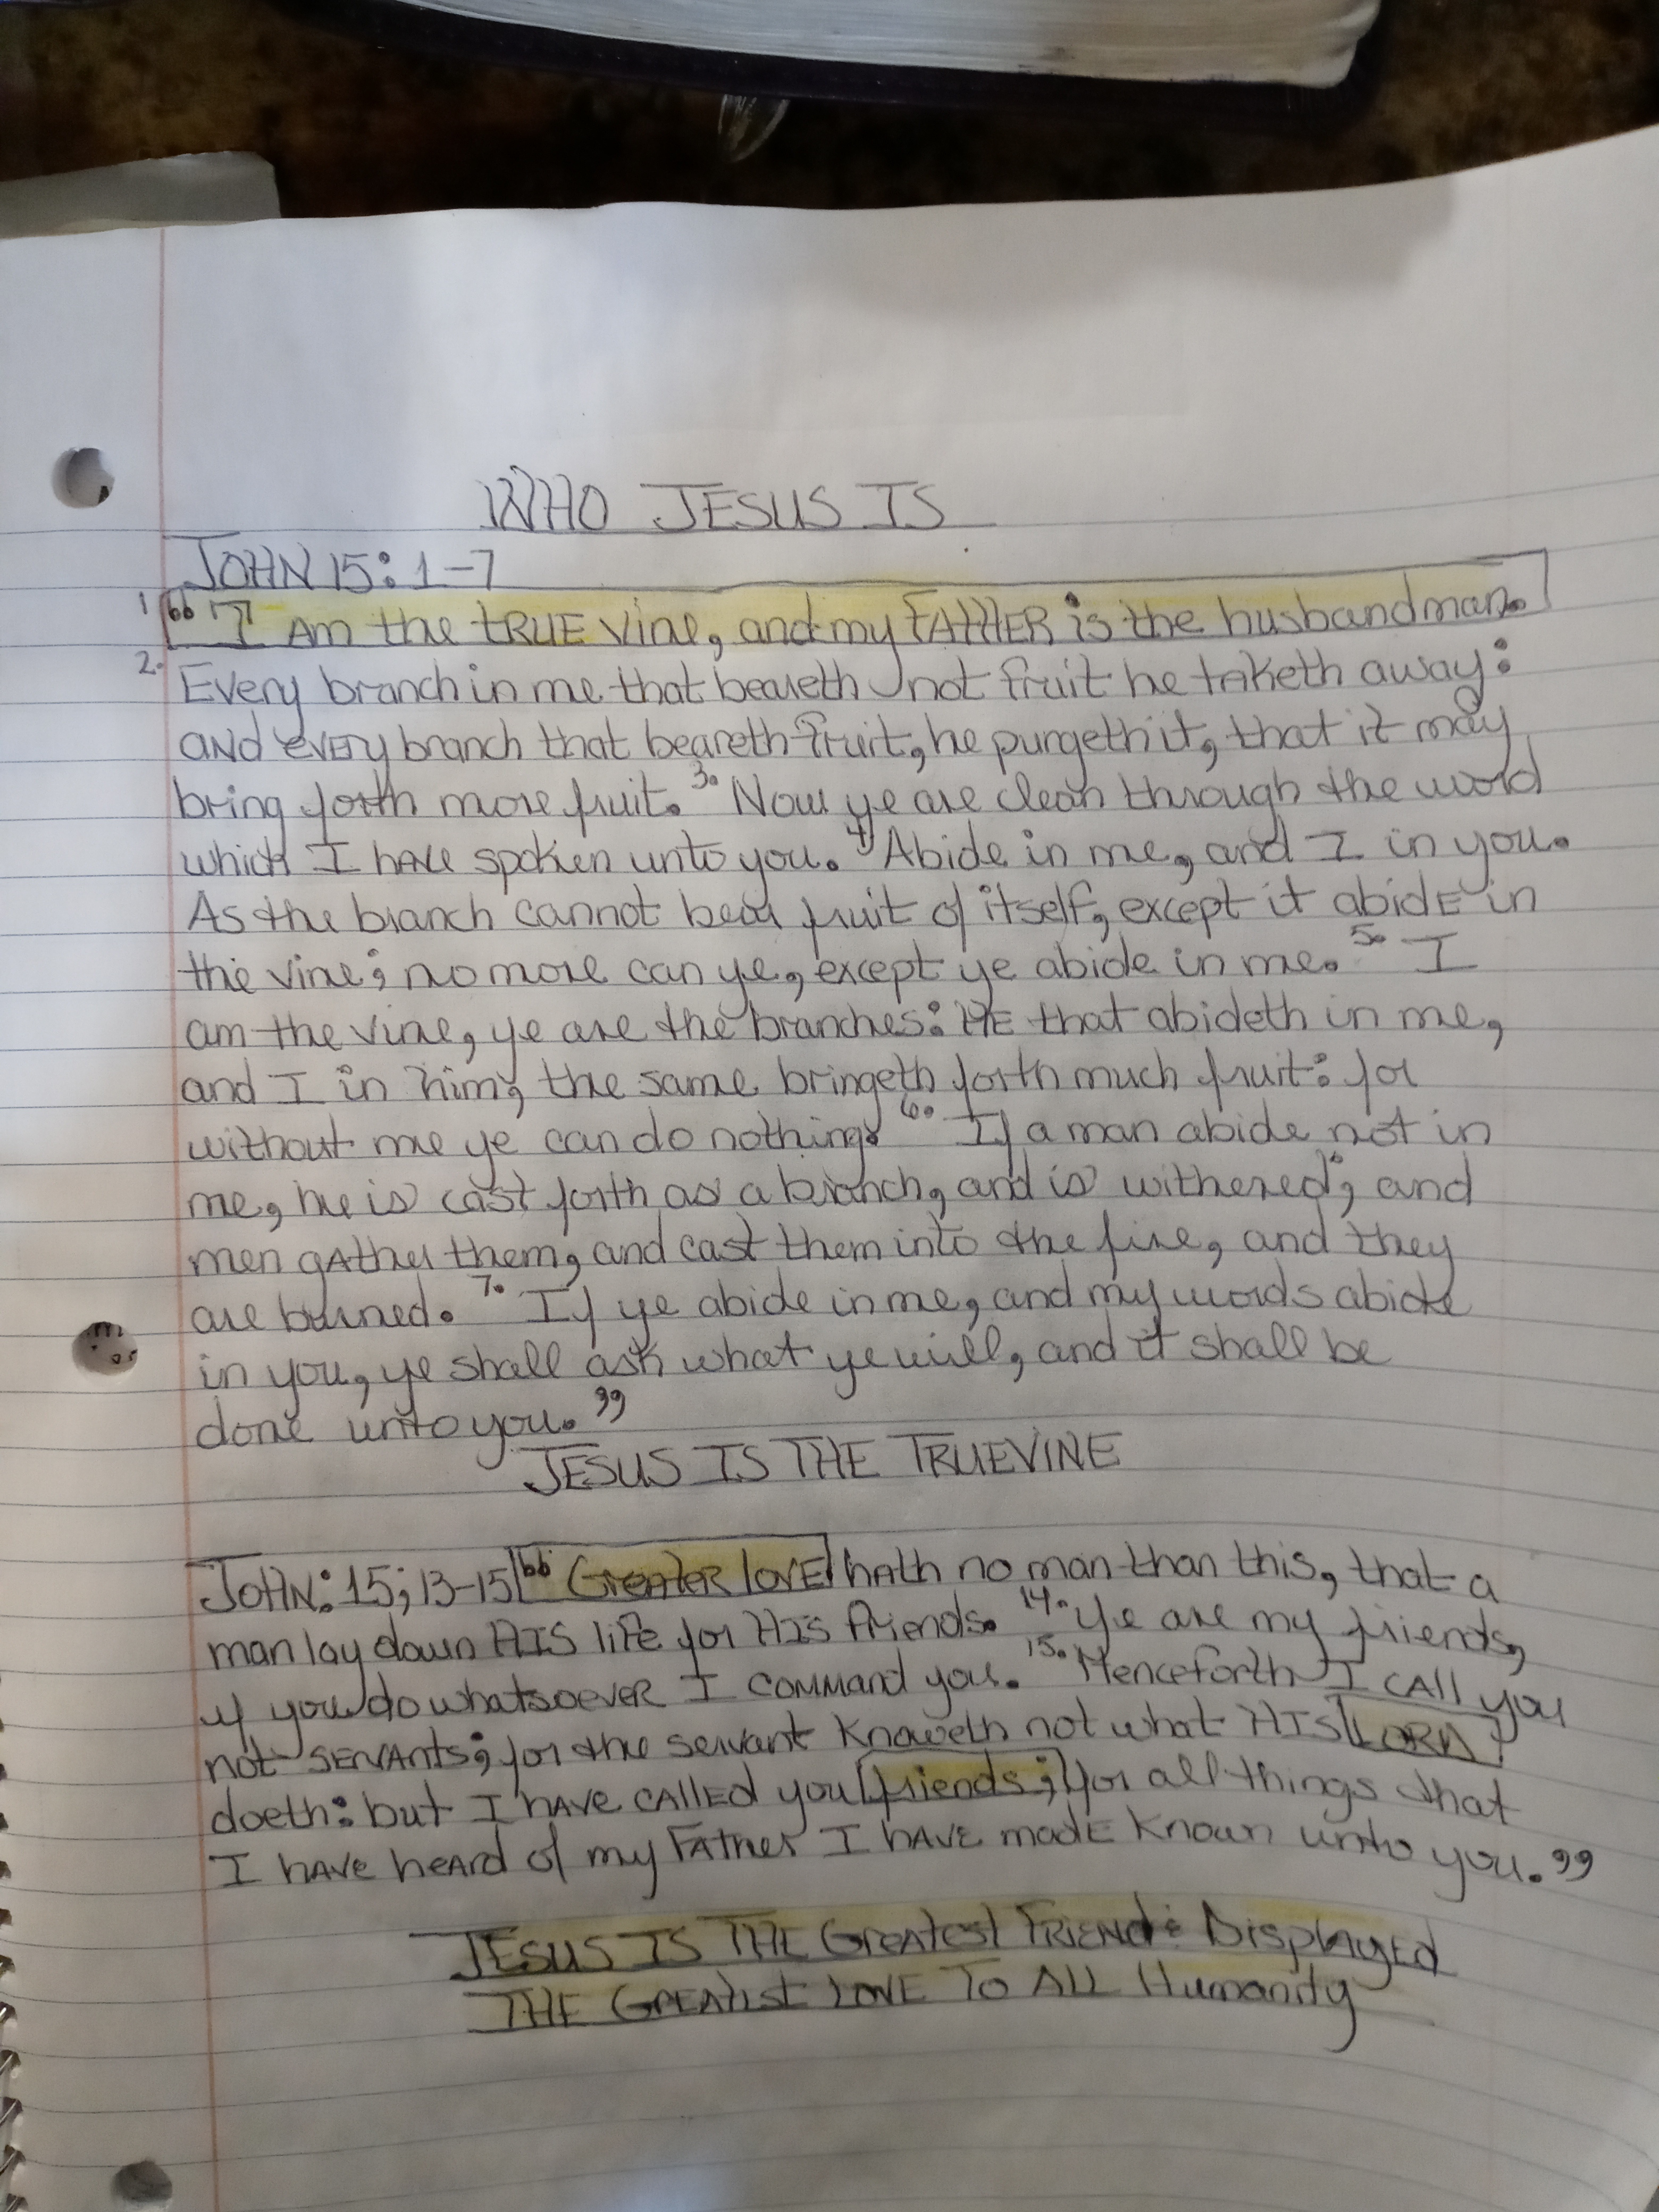 WHO JESUS IS
JOHN 15:1-7
1 "I Am the TRUE Vine, and my FATHER is the husbandman.
2. Every branch in me that beareth not fruit he taketh away:
and EVERY branch that beareth fruit, he purgeth it, that it may
bring forth more fruit. 3. Now ye are clean through the word
which I have spoken unto you. 4 Abide in me, and I in you.
As the branch cannot bear fruit of itself, except it abide in
the vine; no more can ye, except ye abide in me. 5. I
am the vine, ye are the branches: HE that abideth in me,
and I in him, the same bringeth forth much fruit: for
without me ye can do nothing. 6. If a man abide not in
me, he is cast forth as a branch, and is withered; and
men gather them, and cast them into the fire, and they
are burned. 7. If ye abide in me, and my words abide
in you, ye shall ask what ye will, and it shall be
done unto you."
JESUS IS THE TRUEVINE
JOHN: 15; 13-15 "Greater lovE hath no man than this, that a
man lay down HIS life for HIS friends. 14. Ye are my friends,
if you do whatsoever I command you. 15. Henceforth I call you
not SERVANTS; for the servant knoweth not what HIS LORD
doeth: but I have CALLED you friends; for all things that
I have heard of my Father I have made known unto you."
JESUS IS THE GREATEST FRIEND: Displayed
THE GREATIST LOVE TO ALL Humanity